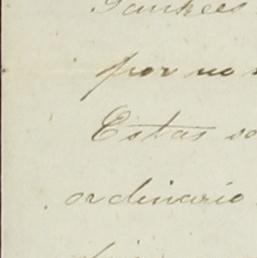 Yankees
por no
Estas so
ordinario